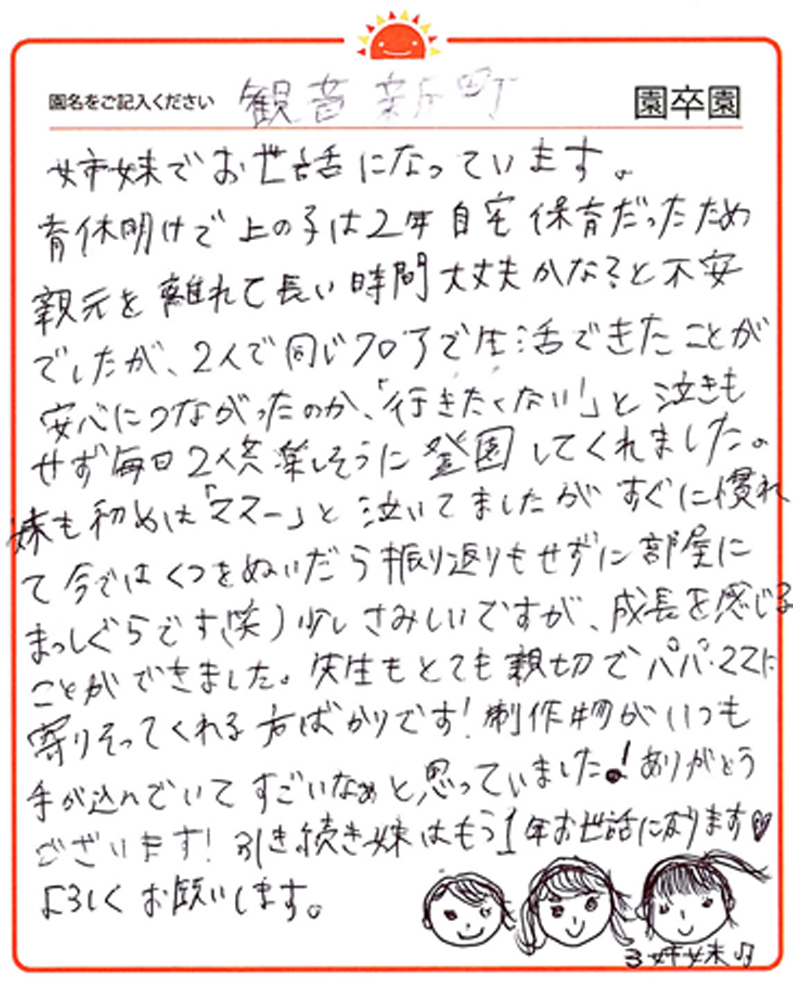 園名をご記入ください 観音新町 園卒園
姉妹でお世話になっています。
育休明けで上の子は2年自宅保育だったため
親元を離れて長い時間大丈夫かな?と不安
でしたが、2人で同じフロアで生活できたことが
安心につながったのか、「行きたくない!」と泣きも
せず毎日2人共楽しそうに登園してくれました。
妹も初めは「ママー」と泣いてましたがすぐに慣れ
て今ではくつをぬいだら振り返りもせずに部屋に
まっしぐらです(笑)少しさみしいですが、成長を感じる
ことができました。先生もとても親切でパパ・ママに
寄りそってくれる方ばかりです!制作物がいつも
手が込んでいてすごいなぁと思っていました!ありがとう
ございます!引き続き妹はもう1年お世話になります♥
よろしくお願いします。
3姉妹♪